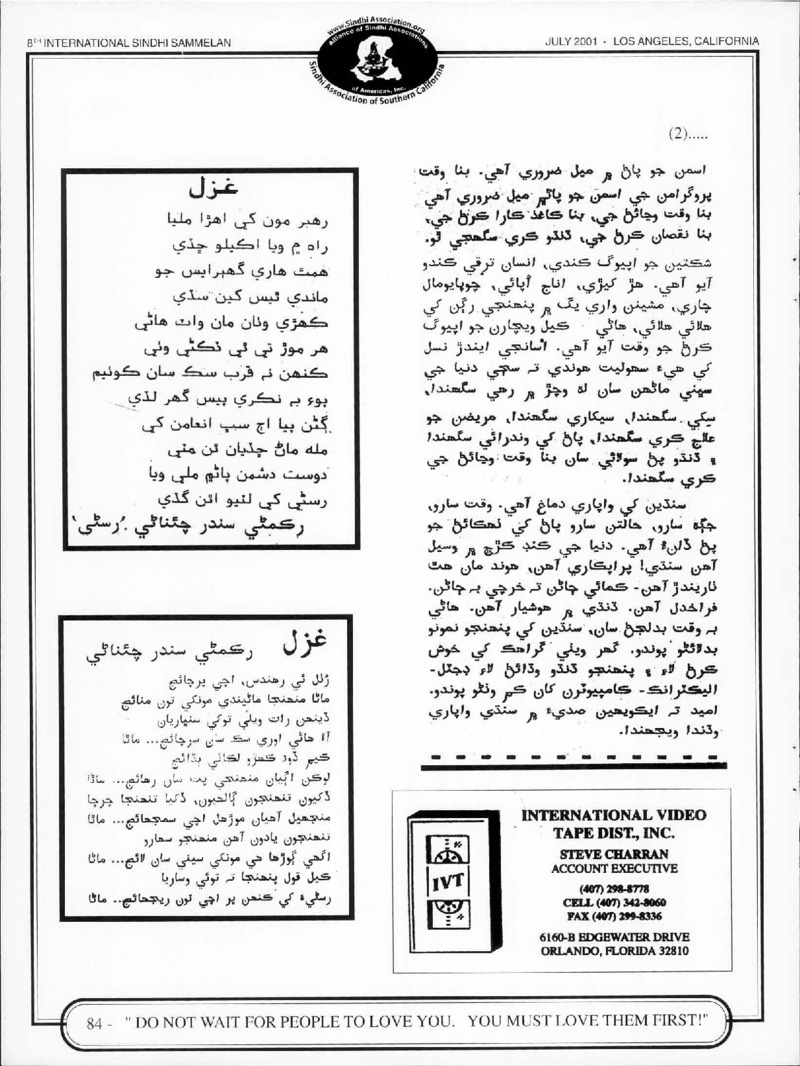 8TH INTERNATIONAL SINDHI SAMMELAN
www.Sindhi Association.org
Alliance of Sindhi Associations
of Americas, Inc.
Sindhi Association of Southern California
JULY 2001 - LOS ANGELES, CALIFORNIA
(2).....
اسمن جو پاڻ ۾ ميل ضروري آهي. بنا وقت
پروگرامن جي اسمن جو پاڻ ۾ ميل ضروري آهي
بنا وقت وڃائڻ جي، بنا ڪاغذ ڪارا ڪرڻ جي،
بنا نقصان ڪرڻ جي، ڌنڌو ڪري سگهجي ٿو.
شڪتين جو اپيوگ ڪندي، انسان ترقي ڪندو
آيو آهي. هڙ کيڙي، اناج اُپائي، چوپايومال
چاري، مشينن واري يگ ۾ پنهنجي رڳن کي
هلائي هلائي، هاڻي ڪيل ويچارن جو اپيوگ
ڪرڻ جو وقت آيو آهي. اسانجي ايندڙ نسل
کي هيءَ سهوليت هوندي تہ سڄي دنيا جي
سڀني ماڻهن سان لهہ وچڙ ۾ رهي سگهندا،
سکي سگهندا، سيکاري سگهندا، مريضن جو
علاج ڪري سگهندا، پاڻ کي وندرائي سگهندا
۽ ڌنڌو پڻ سولائي سان بنا وقت وڃائڻ جي
ڪري سگهندا.
سنڌين کي واپاري دماغ آهي. وقت سارو،
جڳہ سارو، حالتن سارو پاڻ کي ٺهڪائڻ جو
پڻ ڏانءُ آهي. دنيا جي ڪنڊ ڪڙڇ ۾ وسيل
آهن سنڌي! پراپڪاري آهن، هوند مان هٿ
ٺاريندڙ آهن- ڪمائي ڄاڻن تہ خرچي بہ ڄاڻن.
فراخدل آهن. ڌنڌي ۾ هوشيار آهن. هاڻي
بہ وقت بدلجڻ سان، سنڌين کي پنهنجو نمونو
بدلائڻو پوندو. گهر ويٺي گراهڪ کي خوش
ڪرڻ لاءِ ۽ پنهنجو ڌنڌو وڌائڻ لاءِ ڊجٽل-
اليڪٽرانڪ- ڪامپيوٽرن کان ڪم وٺڻو پوندو.
اميد تہ ايڪويهين صديءَ ۾ سنڌي واپاري
وڌندا ويجهندا.
غزل
رهبر مون کي اهڙا مليا
راه ۾ ويا اڪيلو ڇڏي
همٿ هاري گهبرايس جو
ماندي ٿيس کين سڏي
ڪهڙي وڃان مان واٽ هاڻي
هر موڙ تي ٿي ٺڪڻي وڃي
ڪنهن نہ قرب سڪ سان کوئيم
پوءِ بہ نڪري پيس گهر لڏي
ڳڻن پيا اڄ سڀ انعامن کي
ملہ ماڻ ڇڏيان ٿن مٽي
دوست دشمن پاڻ ۾ ملي ويا
رسڻي کي لٽيو اٿن گڏي
رڪمڻي سندر چئناڻي 'رسڻي'
غزل رڪمڻي سندر چئناڻي
رُلل ئي رهندس، اچي پرچائج
ماڻا منهنجا ماڻيندي مونکي تون منائج
ڏينهن رات ويٺي توکي سنڀاريان
آءُ هاڻي اوري سڪ سان سرچائج... ماڻا
ڪيم ڏوھ ڪهڙو لڪائي ٻڌائج
لوڪن اڳيان منهنجي پت سان رهائج... ماڻا
ڏکيون تنهنجون ڳالهيون، ڏکيا تنهنجا چرچا
منجهيل آهيان موڙهل اچي سمجهائج... ماڻا
تنهنجون يادون آهن منهنجو سهارو
اگهي ڳوڙها هي مونکي سيني سان لائج... ماڻا
ڪيل قول پنهنجا تہ توئي وساريا
رسڻيءَ کي ڪنهن پر اچي تون ريجهائج.. ماڻا
IVT
INTERNATIONAL VIDEO
TAPE DIST., INC.
STEVE CHARRAN
ACCOUNT EXECUTIVE
(407) 298-8778
CELL (407) 342-8060
FAX (407) 299-8336
6160-B EDGEWATER DRIVE
ORLANDO, FLORIDA 32810
84 - " DO NOT WAIT FOR PEOPLE TO LOVE YOU. YOU MUST LOVE THEM FIRST!"